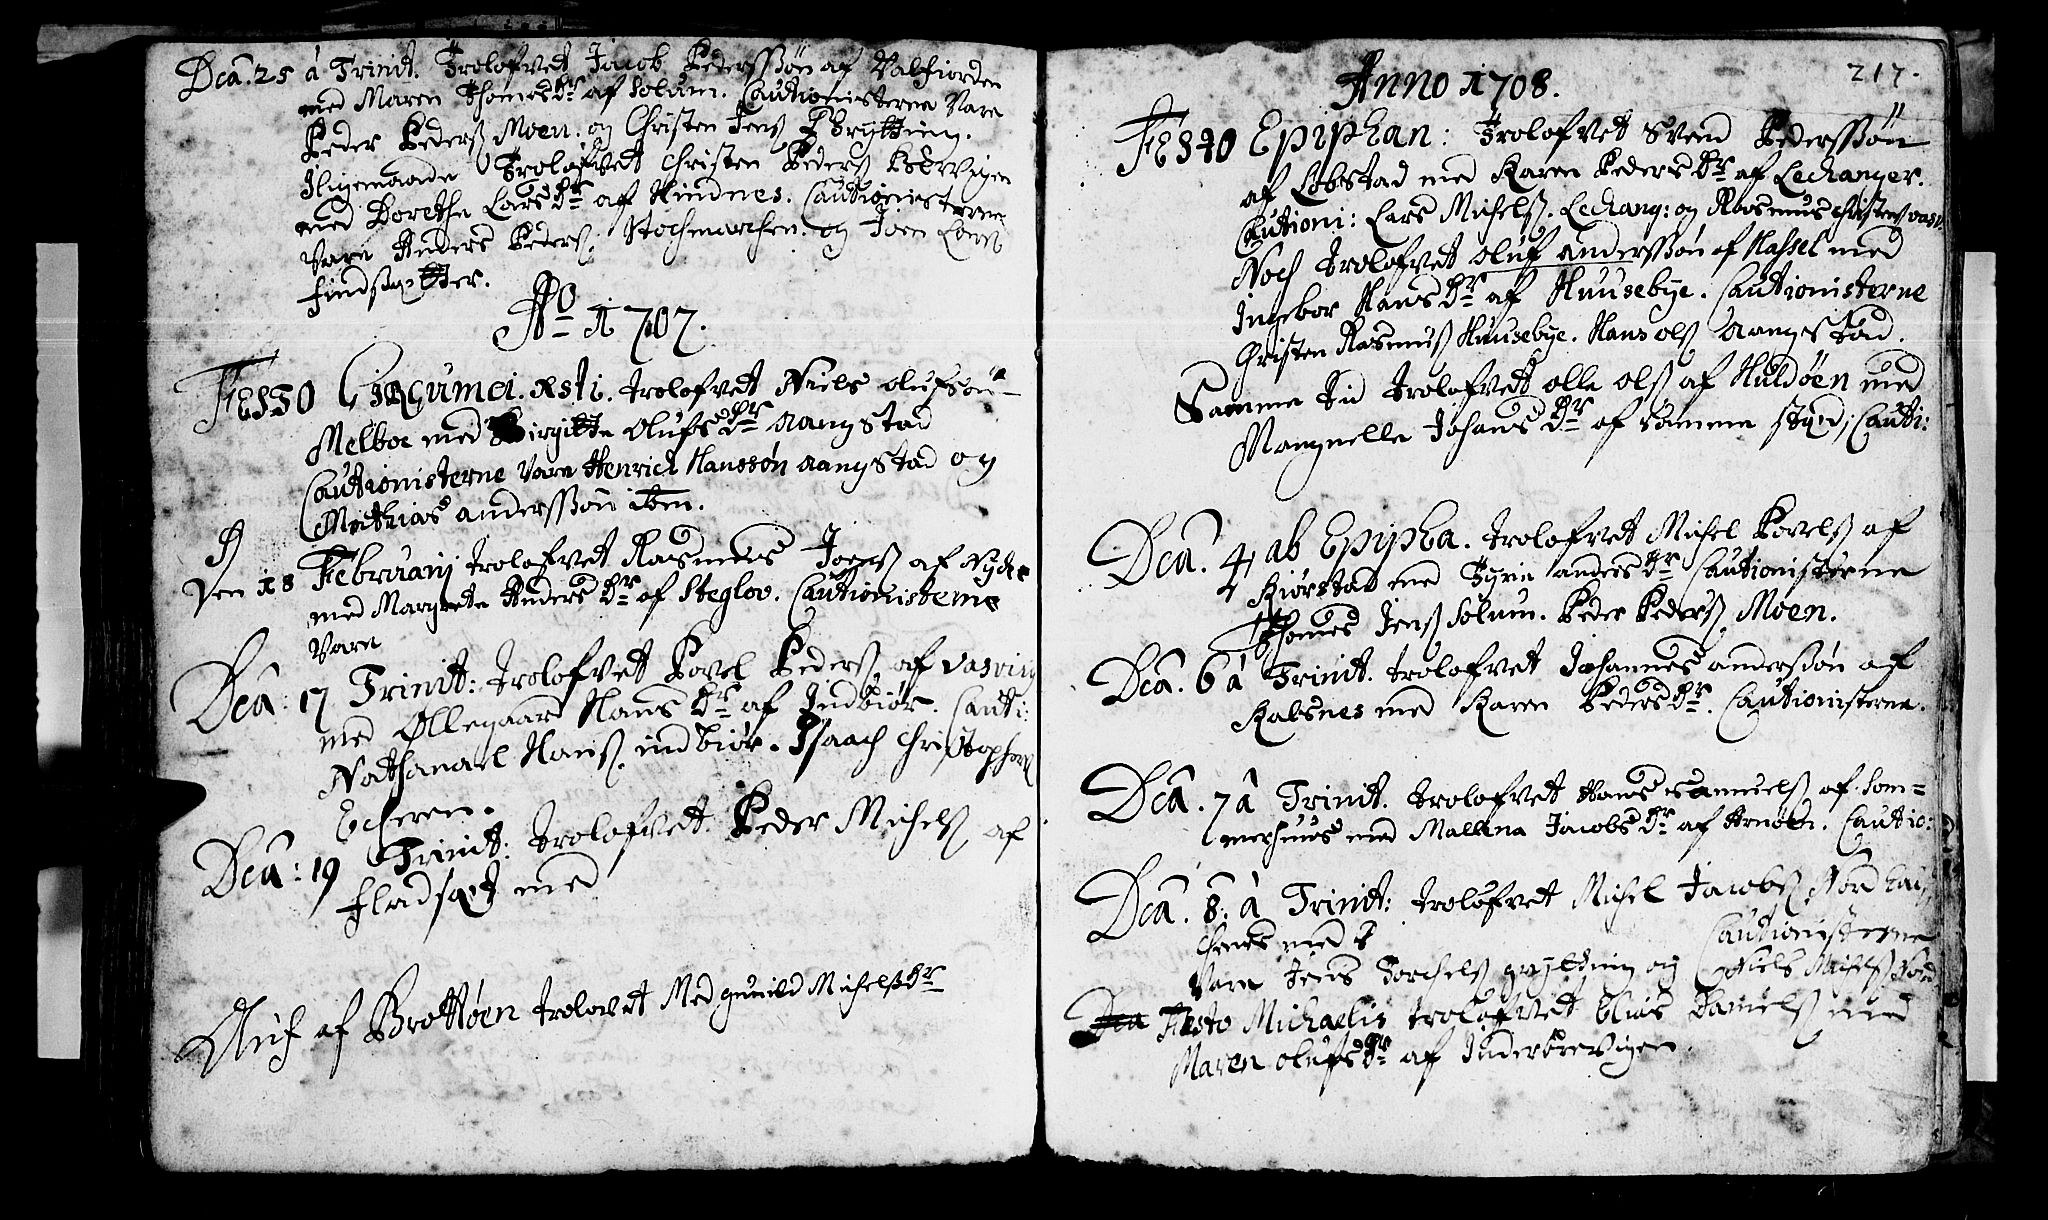 Dca. 25 á Trinit. Trolofvet Jacob Pederssøn af Valfiorden
med Maren Thomæsdr af Solum. Cautionisterne vare
Peder Peders Moen. og Christen Jens Grytting.
Iligemaade Trolofvet Christen Peders
med Dorethe Larsdr af Kindnes. Cautionisterne
vare Anders Peders. Stochmarchen. og Joen
Findsætter.
Ao 1707.
FESTO CIRCUMCI. Xsti. trolofvet Niels olufsøn
Melboe med Birgitte Olufsdr aangstad
Cautionisterne vare Henrich Hanssøn aangstad og
Mathias anderssøn ibm.
Den 18 Februarij trolofvet Rasmus Joens af Nyche
med Margrete Andersdr af Steglov. Cautionisterne
vare
Dca: 17 Trinit: trolofvet Povel Peders af vasvig
med Ollegaar Hansdr af Indbiör. Cauti:
Nathanael Hans. indbiör. Isaach Christophers
Echeren.
Dca: 19 Trinit: trolofvet Peder Michels af
Fladsæt med
af Brottøen trolovet Med gunild Michelsdr
217.
Anno 1708.
FESTO Epiphan: Trolofvet Svend Pederssøn
af Lobstad med Karen Pedersdr af Lechanger.
Cautioni: Lars Michels. Lechang: og Rasmus Christens
Noch trolofvet oluf anderssøn af Hassel med
Ingebor Hansdr af Huusebye. Cautionisterne
Christen Rasmus Huusebye. Hans ols aangstad.
Samme tid trolofvet olle ols af Huldøen med
Mangnelle Johansdr af samme stæd; Cauti:
Dca. 4 ab Epipha. trolofvet Michel Povels af
Kiörstad med Tyrin andersdr Cautionisterne
Thomes Jens Solum. Peder Peders Moen.
Dca. 6 á Trinit. trolofvet Johannes anderssøn af
Kabsnes med Karen Pedersdr. Cautionisterne.
Dca. 7 á Trinit. trolofvet Hans Samuels af Som=
merhuus med Mallena Jacobsdr af Arnøen. Cautio:
Dca. 8. á Trinit: trolofvet Michel Jacobs Nord
med Cautionisterne
vare Jens Torchels grytting og Niels Michels Nord
Festo Michaelis trolofvet Elias Daniels med
Maren olufsdr af Inderbrevigen.